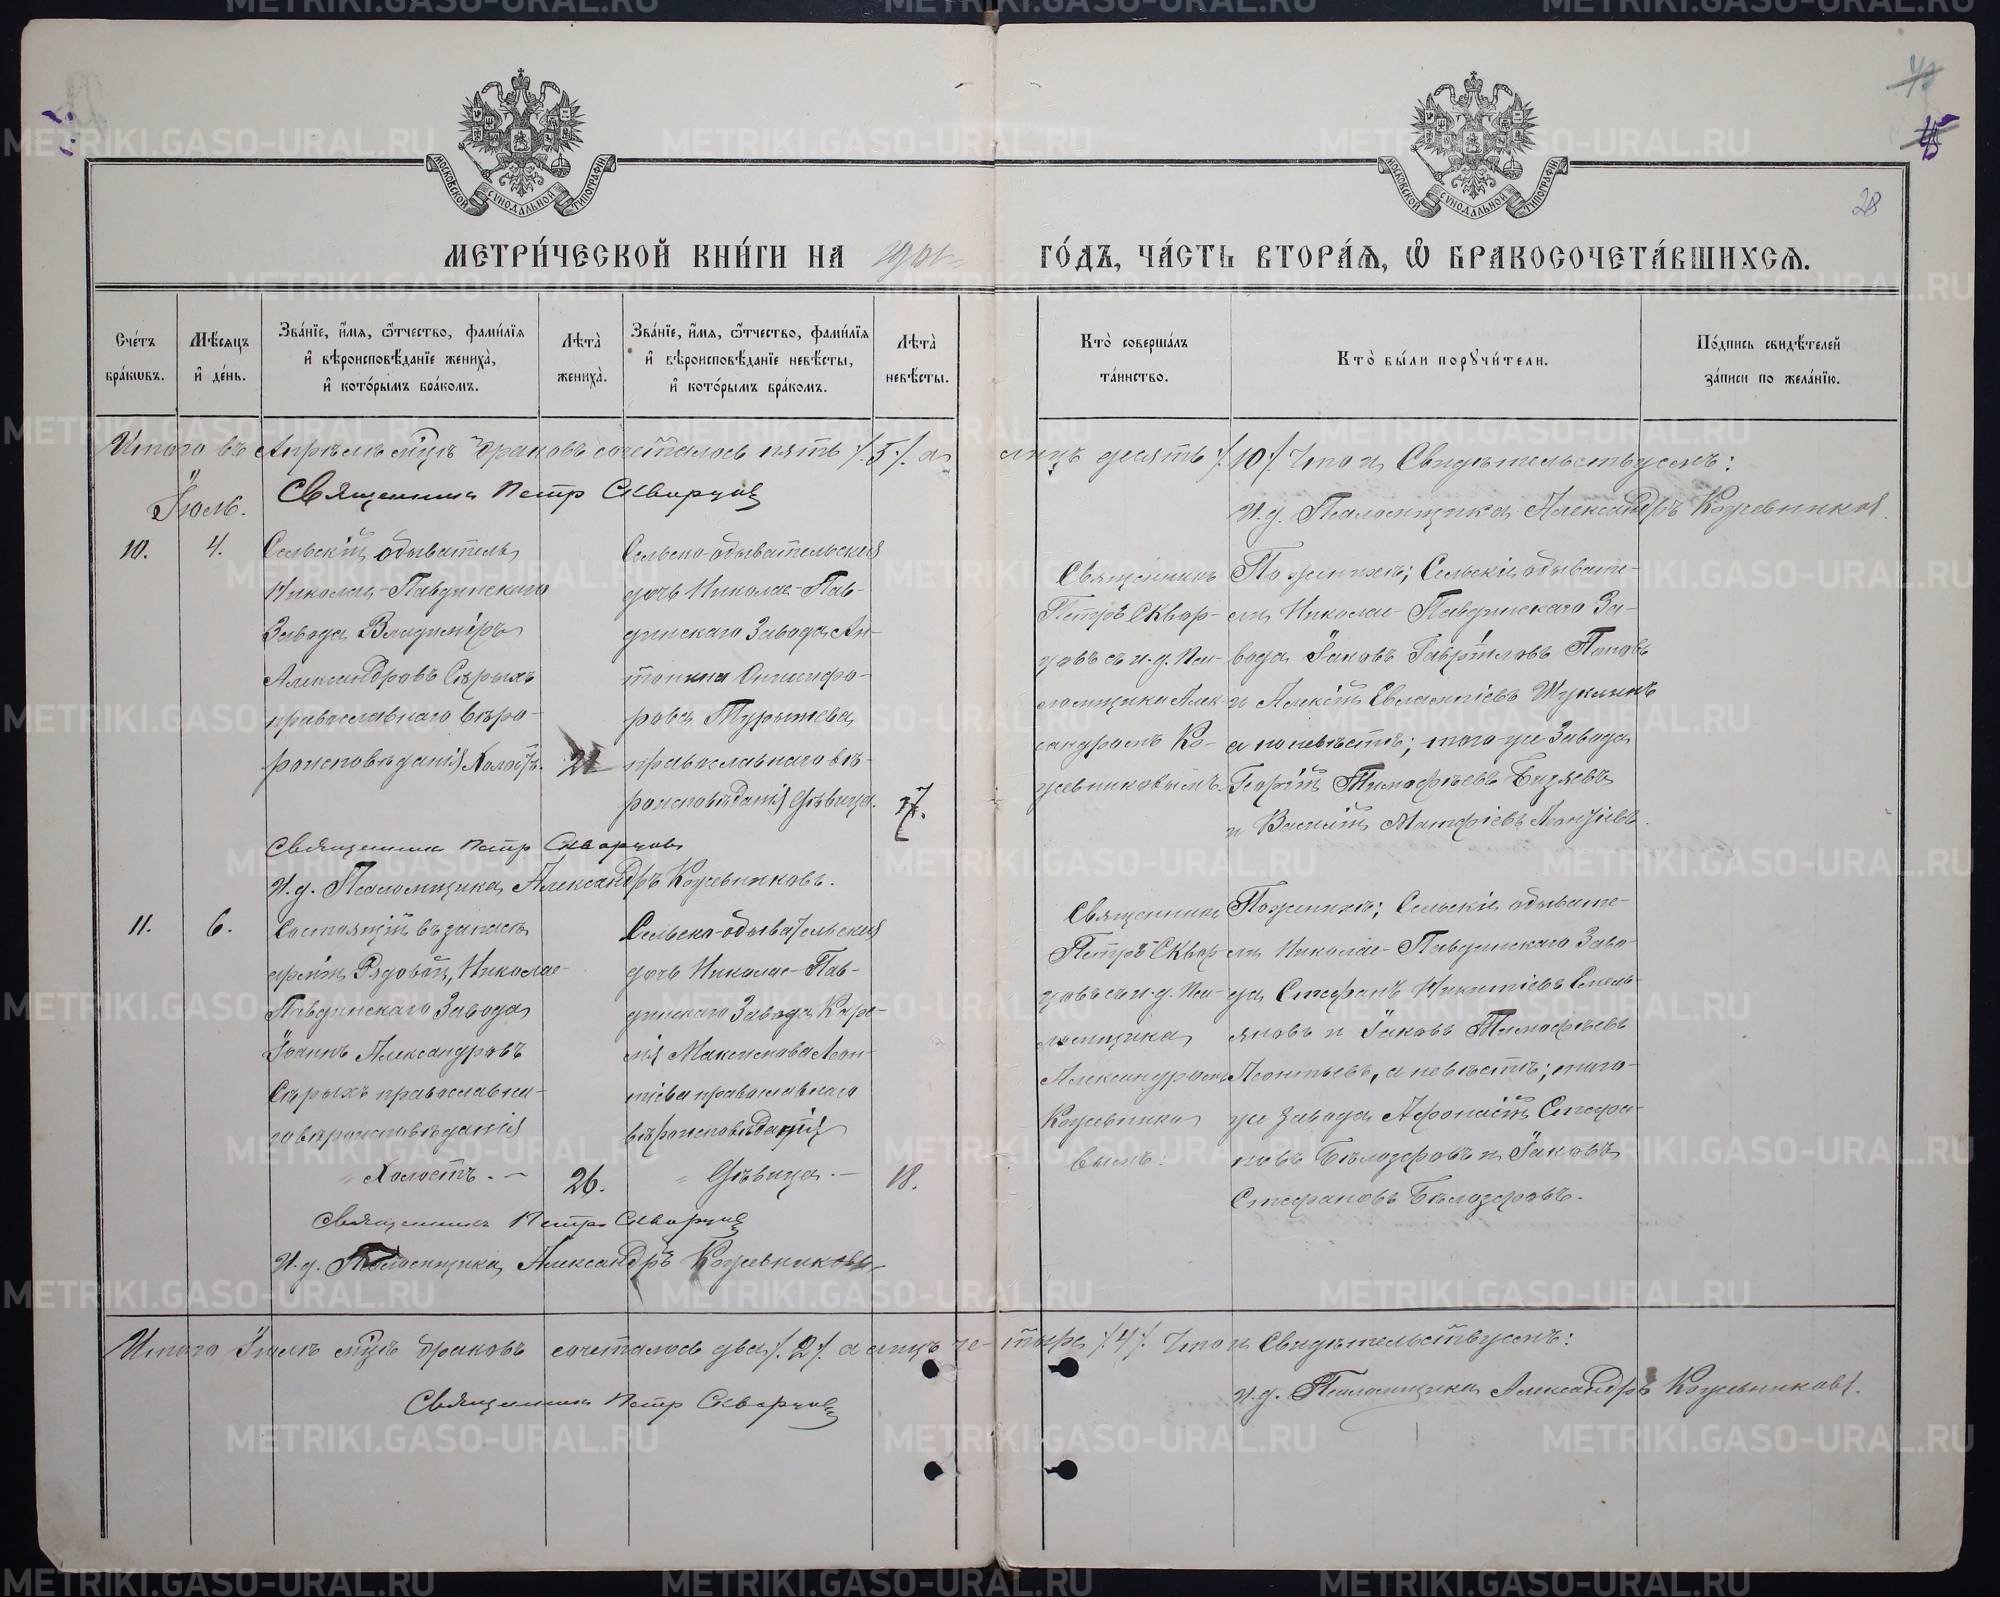 МОСКОВСКОЙ СУНОДАЛЬНОЙ ТИПОГРАФІИ
МОСКОВСКОЙ СУНОДАЛЬНОЙ ТИПОГРАФІИ
45
28
МЕТРИ́ЧЕСКОЙ КНИ́ГИ НА 1901
ГО́ДЪ, ЧА́СТЬ ВТОРА́Ѧ, Ѽ БРАКОСОЧЕТА́ВШИХСѦ.
Сче́тъ бра́кѡвъ.
Мѣ́сѧцъ и҆ де́нь.
Зва́нїе, и҆́мѧ, ѻ҆́тчество, фами́лїѧ и҆ вѣроисповѣ́данїе жениха̀, и҆ кото́рымъ бра́комъ.
Лѣ́та̀ жениха̀.
Зва́нїе, и҆́мѧ, ѻ҆́тчество, фами́лїѧ и҆ вѣроисповѣ́данїе невѣ́сты, и҆ кото́рымъ бра́комъ.
Лѣ́та̀ невѣ́сты.
Кто̀ соверша́лъ та́инство.
Кто̀ бы́ли порꙋчи́тели.
По́дпись свидѣ́телей за́писи по жела́нїю.
Итого въ Апрѣлѣ мцѣ браковъ сочеталось пять /.5/. а
лицъ десять /.10/. Что и Свидѣтельствуемъ:
Священникъ Петръ Скворцовъ
И.д. Псаломщика Александръ Кожевниковъ.
Іюль.
10.
4.
Сельскій обыватель
Николае-Павдинскаго
Завода Владиміръ
Александровъ Сѣрыхъ
православнаго вѣро-
исповѣданія Холостъ.
21
Сельско-обывательская
дочь Николае-Пав-
динскаго Завода Ан-
тонина Онисифо-
рова Турышева
православнаго вѣ-
роисповѣданія Дѣвица.
17.
Священникъ
Петръ Сквор-
цовъ съ и.д. Пса-
ломщика Алек-
сандромъ Ко-
жевниковымъ.
По женихѣ; Сельскіе обывате-
ли Николае-Павдинскаго За-
вода Іаковъ Гавріиловъ Поповъ
и Алексѣй Евлампіевъ Шуклинъ
а по невѣстѣ; того-же Завода
Георгій Тимофѣевъ Бизяевъ
и Василій Матфіевъ
Священникъ Петръ Скворцовъ
И.д. Псаломщика Александръ Кожевниковъ.
11.
6.
Состоящій въ запасѣ
арміи Рядовой, Николае-
Павдинскаго Завода
Іоаннъ Александровъ
Сѣрыхъ православна-
го вѣроисповѣданія
" Холостъ. —
26.
Сельско-обывательская
дочь Николае-Пав-
динскаго Завода Ксе-
нія Максимова Леон-
тіева православнаго
вѣроисповѣданія
" Дѣвица. —
18.
Священникъ
Петръ Сквор-
цовъ съ и.д. Пса-
ломщика
Александромъ
Кожевнико
вымъ:
По женихѣ; Сельскіе обывате-
ли Николае-Павдинскаго Заво-
да Стефанъ Никитіевъ Емель-
яновъ и Іаковъ Тимофѣевъ
Леонтьевъ, а невѣстѣ; того-
же завода Афонасій Стефа-
новъ Бѣлозеровъ и Іаковъ
Стефановъ Бѣлозеровъ.
Священникъ Петръ Скворцовъ
И.д. Псаломщика Александръ Кожевниковъ
Итого Іюлѣ мцѣ браковъ сочеталось два /.2/. а лицъ че-
тыре /.4/. Что и Свидѣтельствуемъ:
Священникъ Петръ Скворцовъ
И.д. Псаломщика Александръ Кожевниковъ.
METRIKI.GASO-URAL.RU